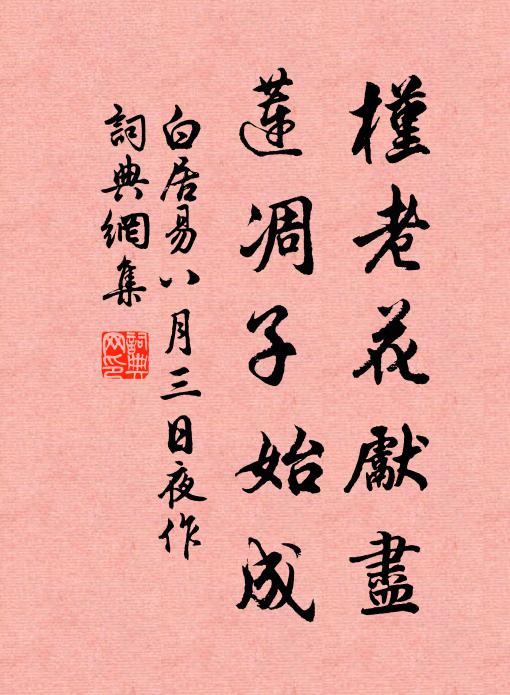 槿老花獻盡
蓮凋子始成
白居易八月三日夜作
詞典網集
詞典网印